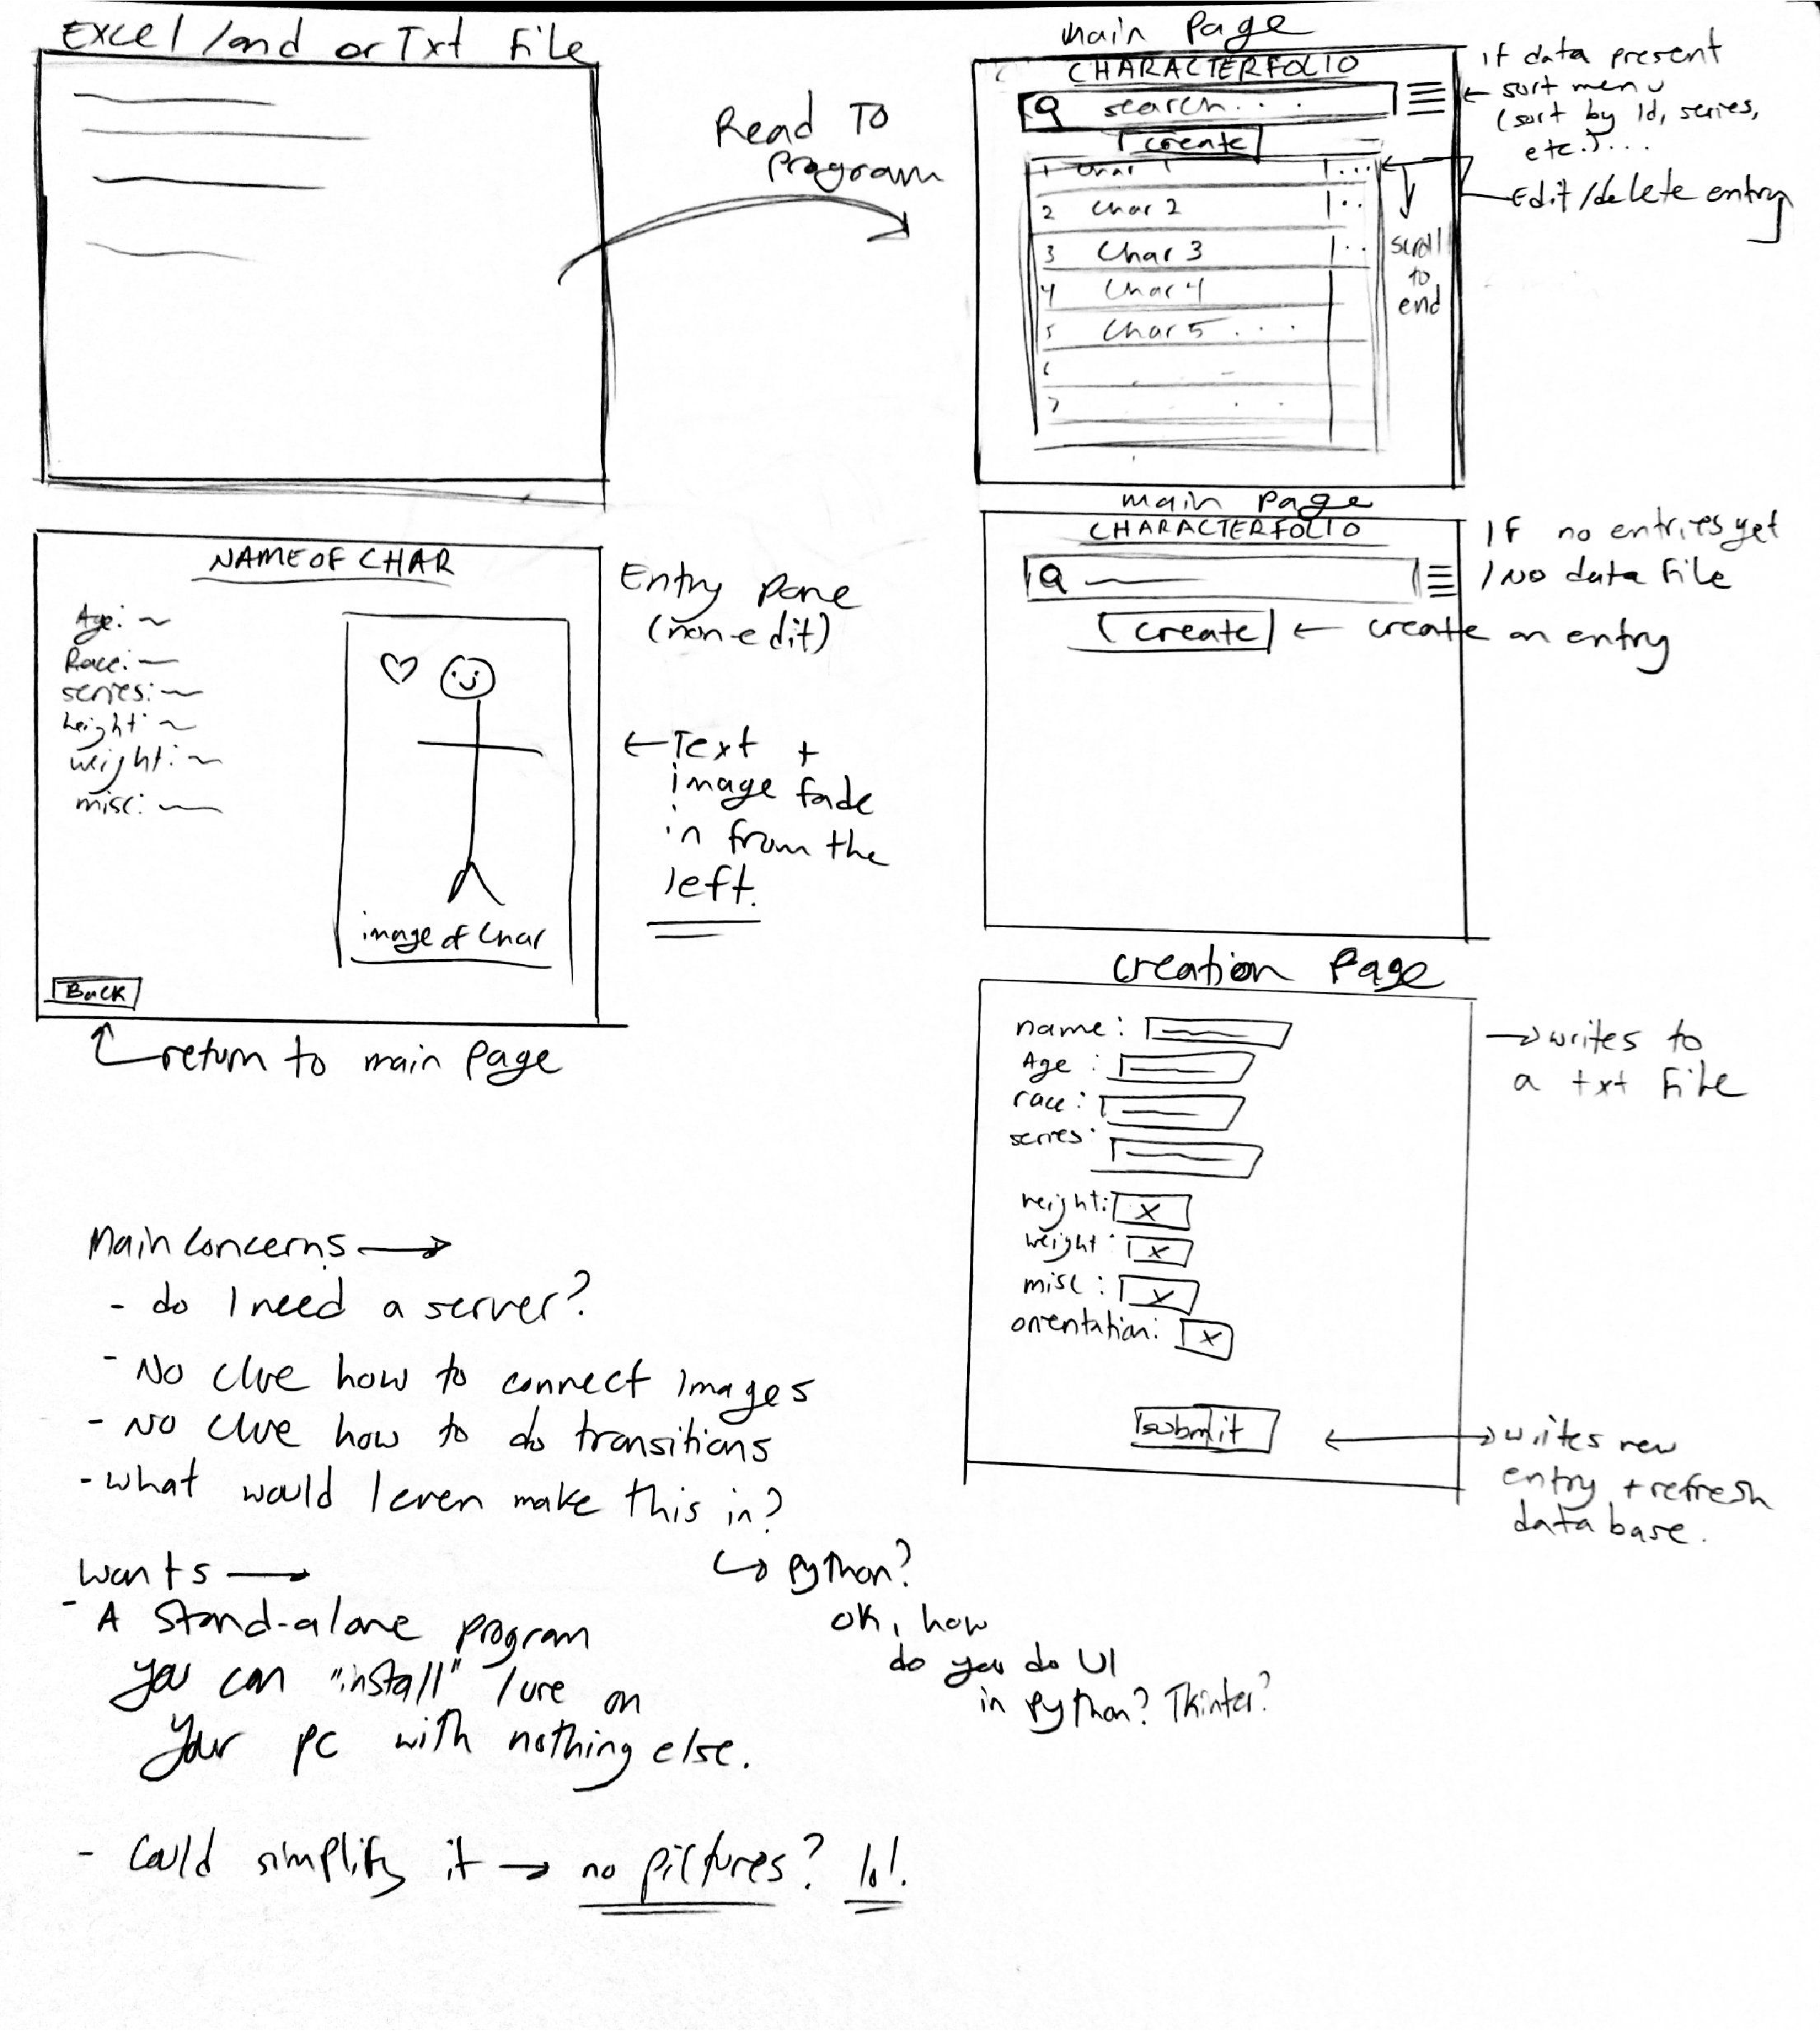 Excel /and or Txt File
Read To
Program
main Page
CHARACTERFOLIO
search...
create
1 Char 1 ...
2 Char 2 ..
3 Char 3 ..
4 Char 4
5 Char 5 ....
6
7
If data present
sort menu
(sort by Id, series,
etc.)...
Edit/delete entry
scroll
to
end
NAME OF CHAR
Age:
Race:
series:
height:
weight:
misc:
image of Char
Back
return to main page
Entry Pane
(non-edit)
Text +
image fade
in from the
left.
main page
CHARACTERFOLIO
create
IF no entries yet
/ No data File
create an entry
Creation Page
name:
Age:
race:
series:
height: x
weight: x
misc: x
orientation: x
submit
writes to
a txt File
writes new
entry + refresh
database.
Main Concerns
- do I need a server?
- No clue how to connect images
- No clue how to do transitions
- what would I even make this in?
Python?
ok, how
do you do UI
in python? Tkinter?
Wants
- A Stand-alone program
you can "install" / use on
your pc with nothing else.
- Could simplify it → no pictures? lol.